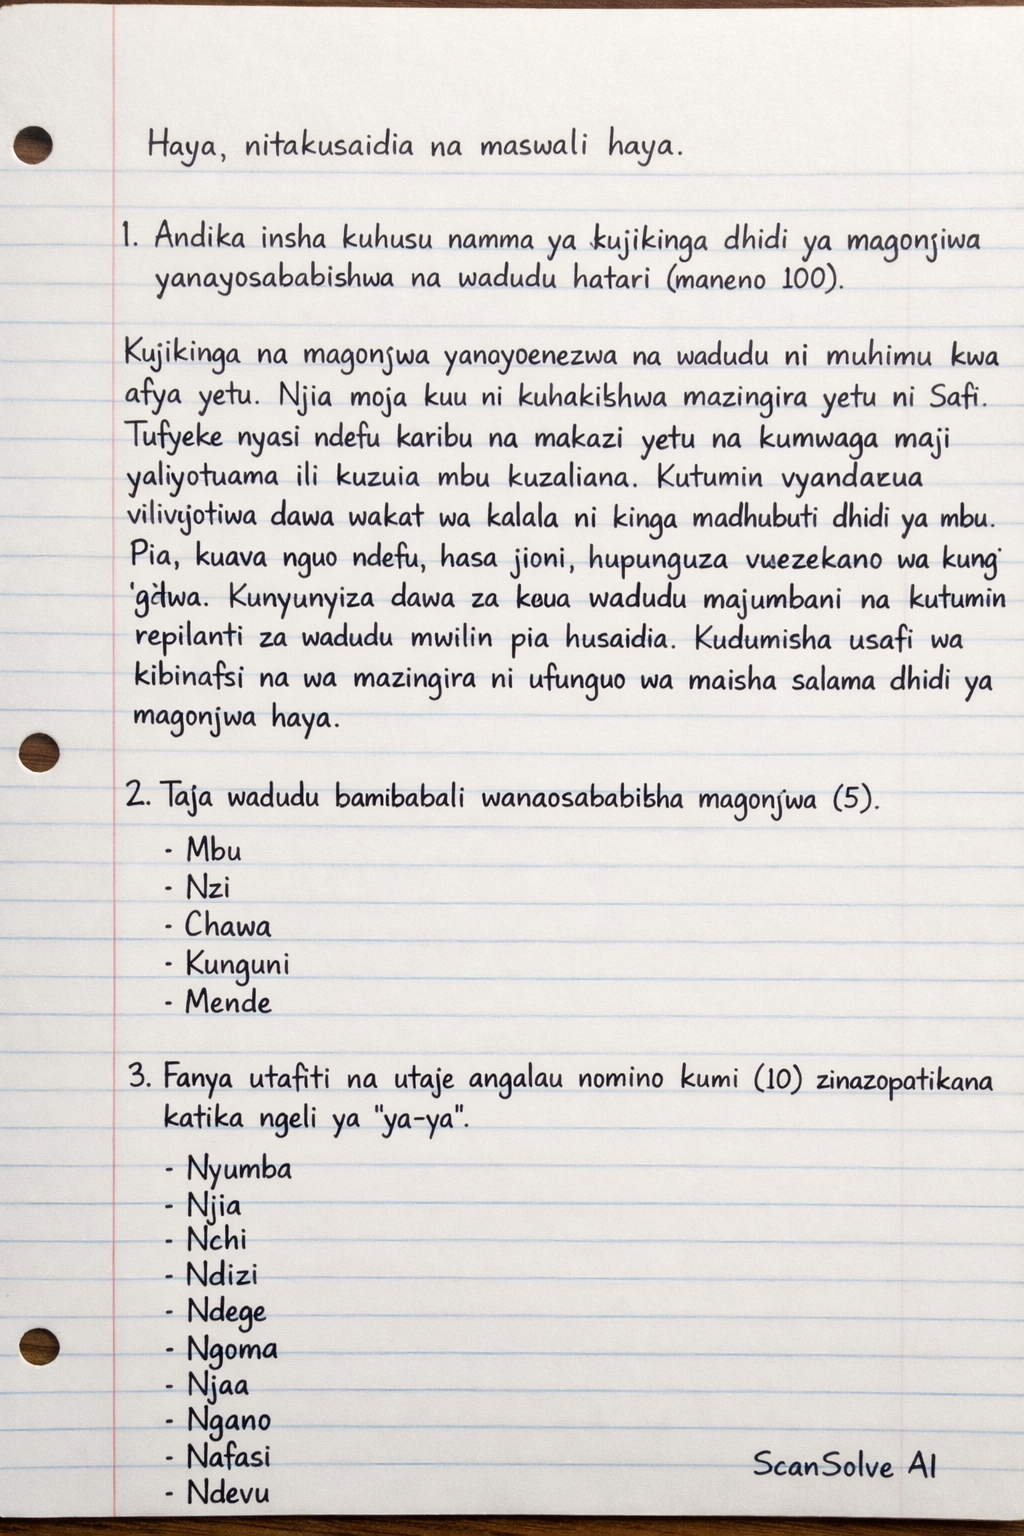 Haya, nitakusaidia na maswali haya.
1. Andika insha kuhusu namma ya kujikinga dhidi ya magonjiwa
yanayosababishwa na wadudu hatari (maneno 100).
Kujikinga na magonjwa yanoyoenezwa na wadudu ni muhimu kwa
afya yetu. Njia moja kuu ni kuhakibhwa mazingira yetu ni Safi.
Tufyeke nyasi ndefu karibu na makazi yetu na kumwaga maji
yaliyotuama ili kuzuia mbu kuzaliana. Kutumin vyandazua
vilivyotiwa dawa wakat wa kalala ni kinga madhubuti dhidi ya mbu.
Pia, kuava nguo ndefu, hasa jioni, hupunguza vuezekano wa kung'
Kunyunyiza dawa za keua wadudu majumbani na kutumin
repilanti za wadudu mwilin pia husaidia. Kudumisha usafi wa
kibinafsi na wa mazingira ni ufunguo wa maisha salama dhidi ya
magonjwa haya.
2. Taja wadudu bamibabali wanaosababibha magonjwa (5).
- Mbu
- Nzi
- Chawa
- Kunguni
- Mende
3. Fanya utafiti na utaje angalau nomino kumi (10) zinazopatikana
katika ngeli ya "ya-ya".
- Nyumba
- Njia
- Nchi
- Ndizi
- Ndege
- Ngoma
- Njaa
- Ngano
- Nafasi
- Ndevu
ScanSolve AI